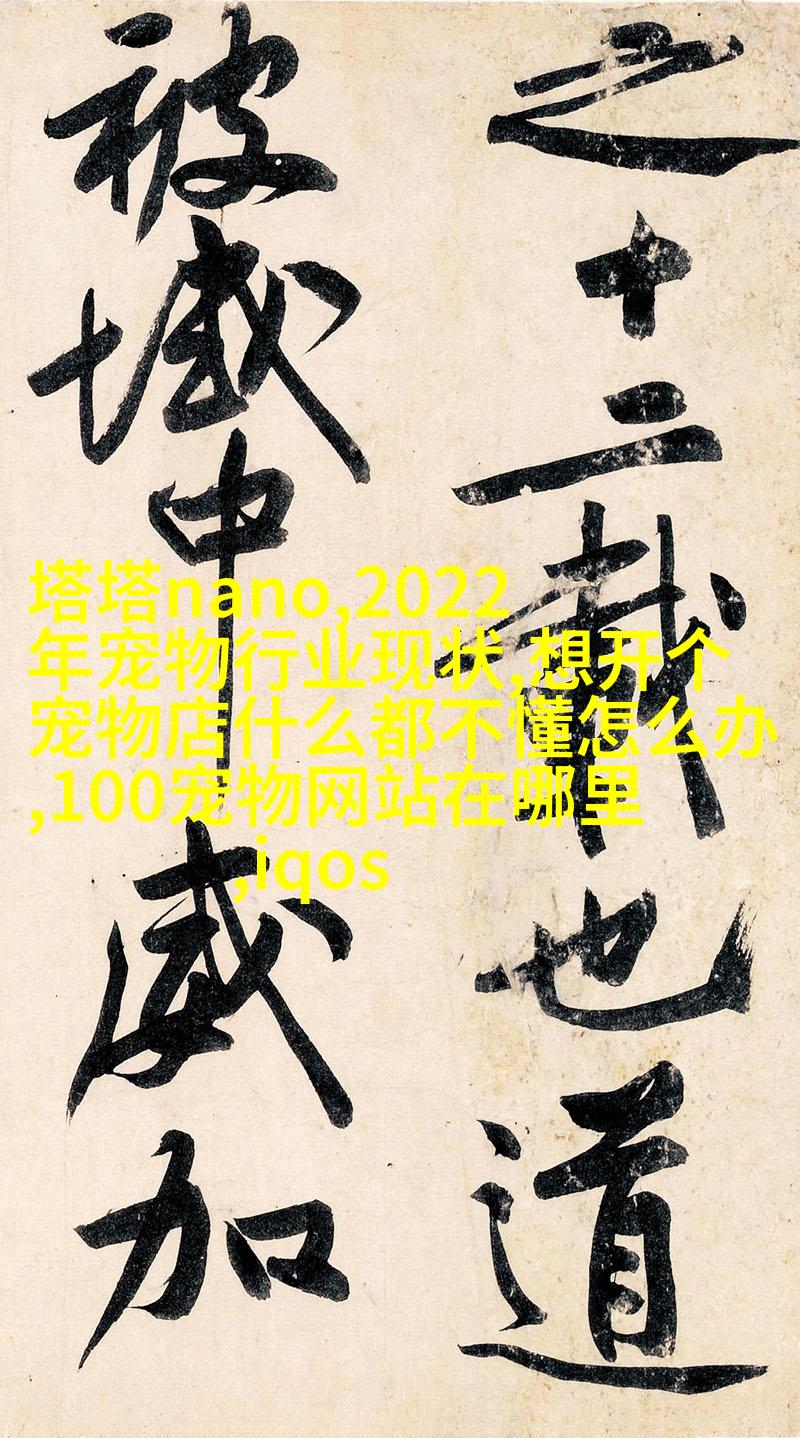 之十二載也道
被域中威加
塔塔nano,2022
年宠物行业现状,想开个
宠物店什么都不懂怎么办
,100宠物网站在哪里
,iqos